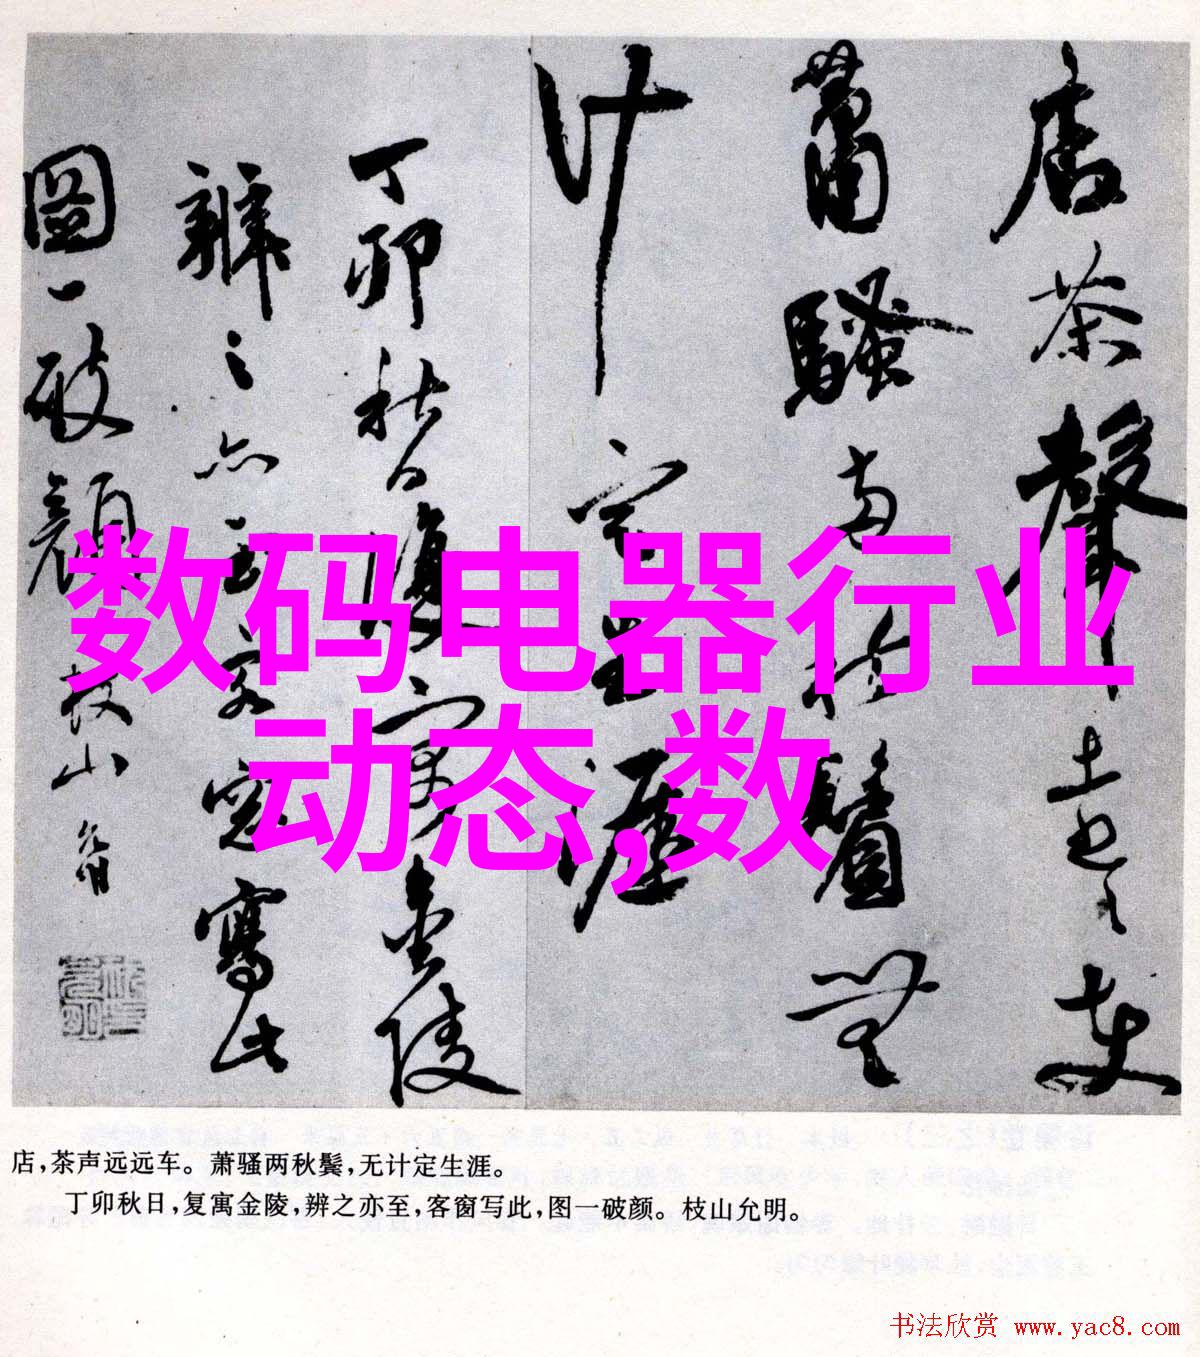 店茶聲遠遠車
蕭騷两秋鬢無
计定生涯
丁卯秋日復寓金陵
辨之亦至客窓寫此
圖一破顔枝山允明
数码电器行业
动态,数
店,茶声远远车。萧骚两秋鬓,无计定生涯。
丁卯秋日,复寓金陵,辨之亦至,客窗写此,图一破颜。枝山允明。
书法欣赏 www.yac8.com